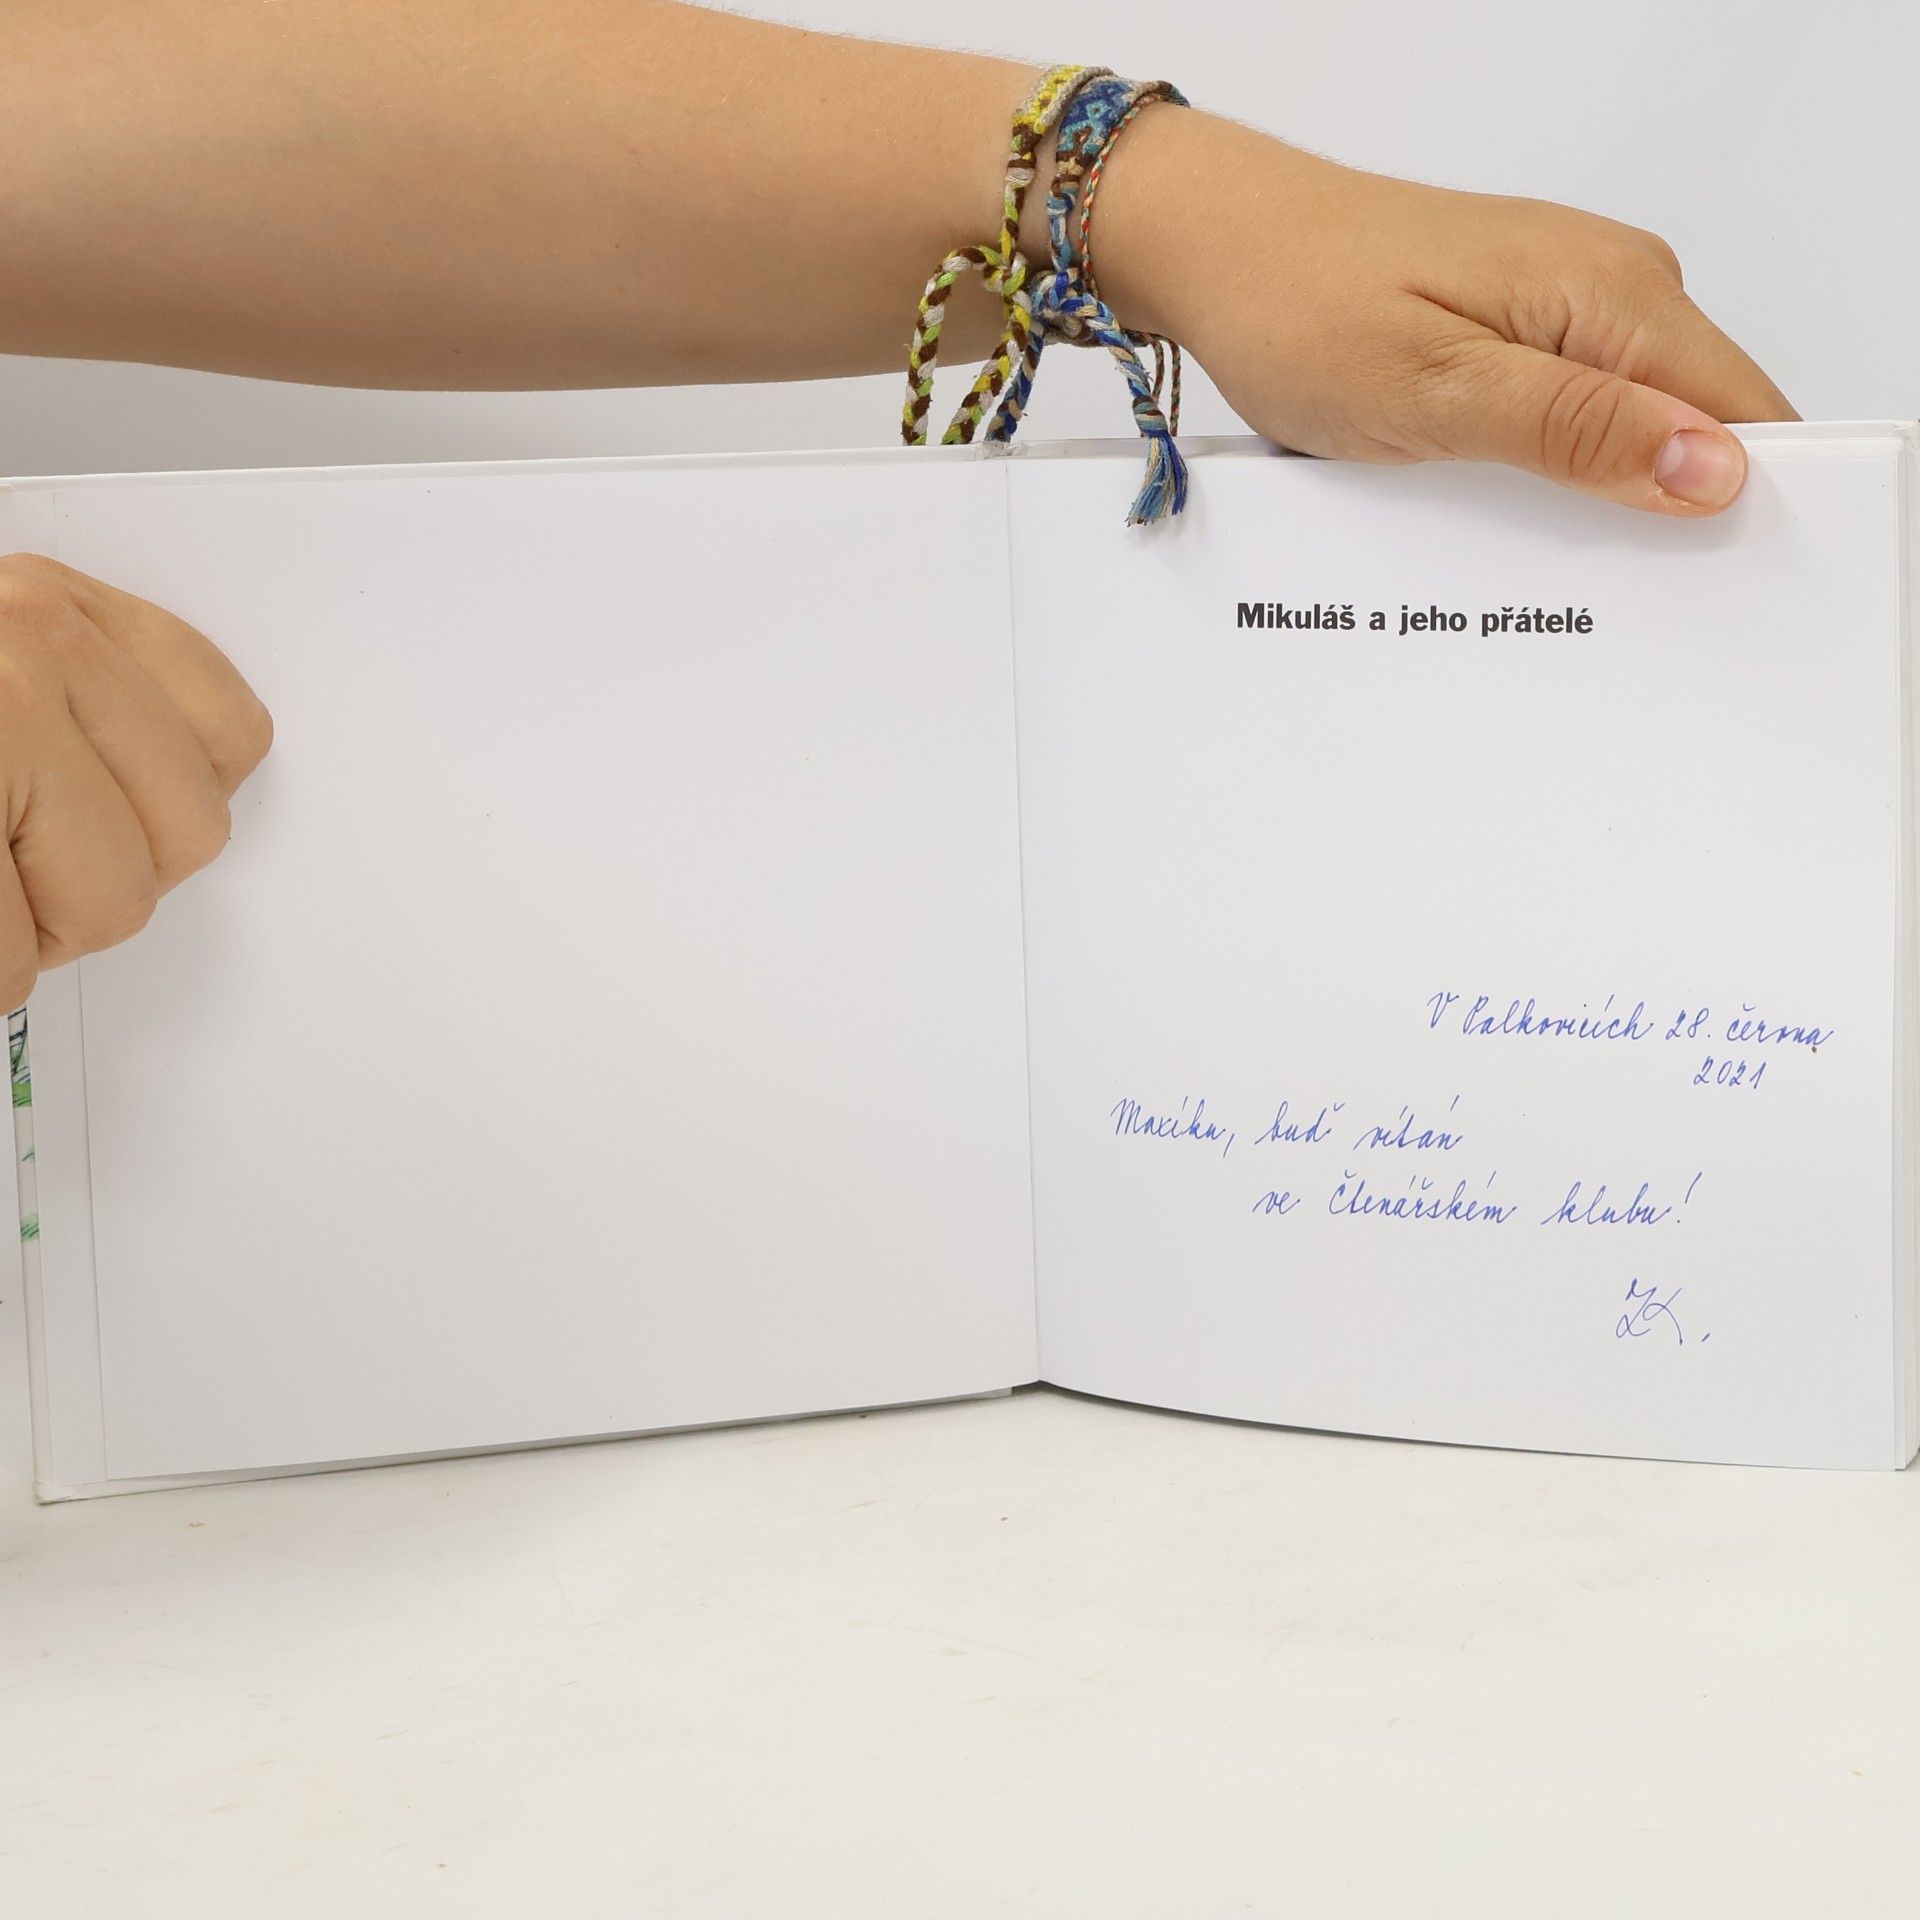 Mikuláš a jeho přátelé
V Palkovicích 28. června
2021
Maxíku, buď vítán
ve Čtenářském klubu!
ZK.